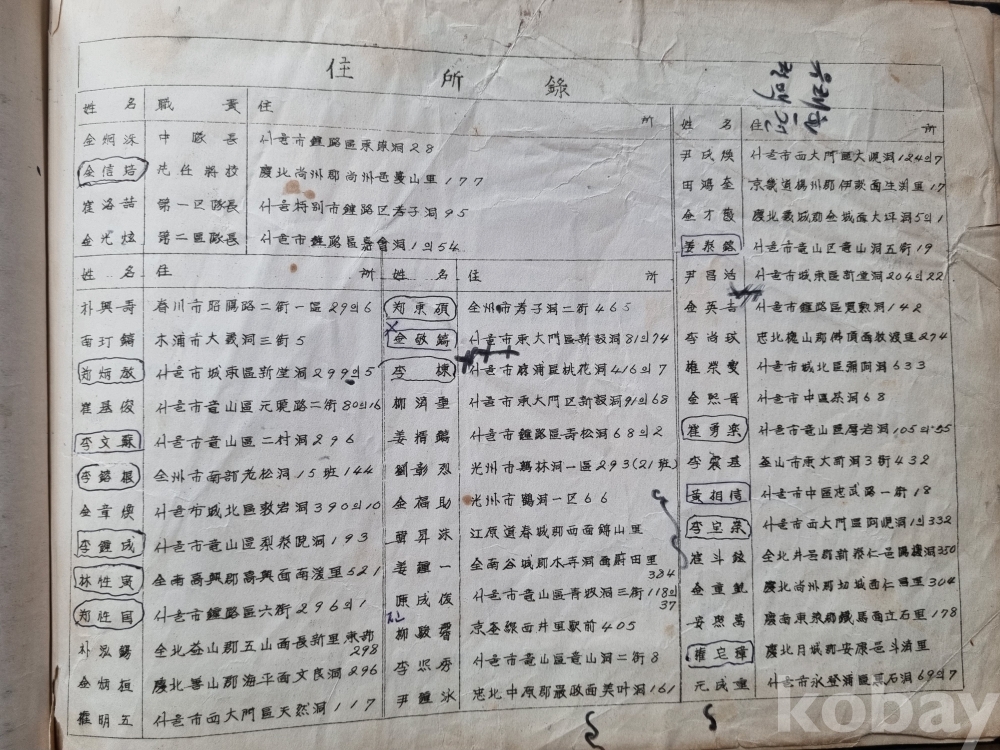 住所錄
姓名 職責 住所
金炯泳 中隊長 서울市鍾路區東崇洞28
金信培 先任將校 慶北尙州郡尙州邑蔓山里177
崔洛喆 第一区隊長 서울特別市鍾路区孝子洞95
金光炫 第二區隊長 서울市鍾路區嘉會洞1의54
姓名 住所
朴興壽 春川市昭陽路二街一區29의6
南玎鎬 木浦市大義洞三街5
鄭炳敎 서울市城東區新堂洞299의5
崔基俊 서울市竜山區元曉路二街80의16
李文蘇 서울市竜山區二村洞296
李鎔根 全州市南部老松洞15班144
金章煥 서울市城北區敦岩洞390의10
李鍾成 서울市竜山區梨泰院洞193
林性寅 全南高興郡高興面南渡里521
鄭性國 서울市鍾路區六街296의1
朴泓錫 全北益山郡五山面長新里東部298
金炳桓 慶北善山郡海平面文良洞296
崔明五 서울市西大門區天然洞117
姓名 住所
鄭東碩 全州市孝子洞二街465
金敬鎬 서울市東大門區新設洞81의74
李棟 서울市麻浦區桃花洞416의7
柳濟聖 서울市東大門区新設洞91의68
姜揩鎬 서울市鍾路區壽松洞68의2
劉彰烈 光州市鷄林洞一區293(21班)
金福助 光州市鶴洞一区66
江原道春城郡西面錦山里
姜鍾一 全南谷城郡木寺洞面蔚田里384
陳成俊 서울市竜山區靑坡洞三街118의37
柳駿 京釜線西井里駅前405
李熙 서울市竜山區竜山洞二街8
尹鍾泳 忠北中原郡嚴政面美叶洞161
姓名 住所
尹成煥 서울市西大門區大峴洞124의7
田鴻奎 京畿道楊州郡伊淡面生渊里17
金才 慶北義城郡金城面大坪洞5의1
姜泰鎔 서울市竜山区竜山洞五街19
尹昌浩 서울市城東區新堂洞204의22
金英吉 서울市鍾路區寬勳洞142
李尙玖 忠北槐山郡佛頂面牧渡里274
崔榮 서울市城北區彌阿洞633
金熙晋 서울市中區芬洞68
崔勇楽 서울市竜山區厚岩洞105의55
李震基 釜山市東大新洞3街432
黃相信 서울市中區忠武路一街18
李宝榮 서울市西大門區阿峴洞1의332
崔斗鉉 全北井邑郡新泰仁邑陽槐洞350
金重 慶北尙州郡 304
安熙萬 慶南東萊郡鉄馬面立石里178
崔 慶北月城郡安康邑斗流里
元成重 서울市永登浦區黑石洞69의7
kobay